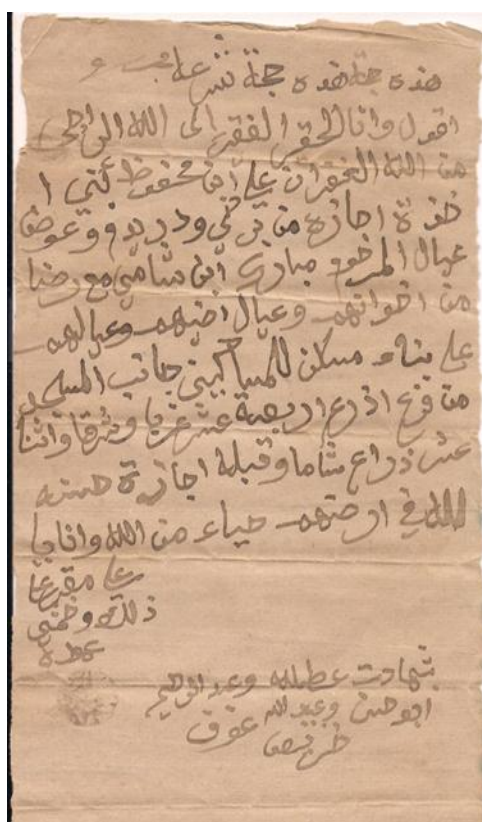 هذه جة هذه حجة شرعية
اقول وانا الحقير الفقير الى الله الراجى
من الله الغفران علي ابن محفوظ أنني ا
خذة اجازه من تركي ودريدم وعوض
عيال المرحوم مبارك ابن شامي مع رضا
من اخوانهم وعيال اخيهم وعيالهم
على بناء مسكن للمساكين جانب المسجد
من فرع اذرع اربعة عشر غربا وشرقا واثنا
عشر ذراع شاما وقبلة اجازة حسنه
لله في ارضهم حياء من الله وانا يا
علي مقر عا
ذلك وختمي
عمدة
شهادت عطيالله وعبدالرحيم
ابو حسن وعبدالله عوف